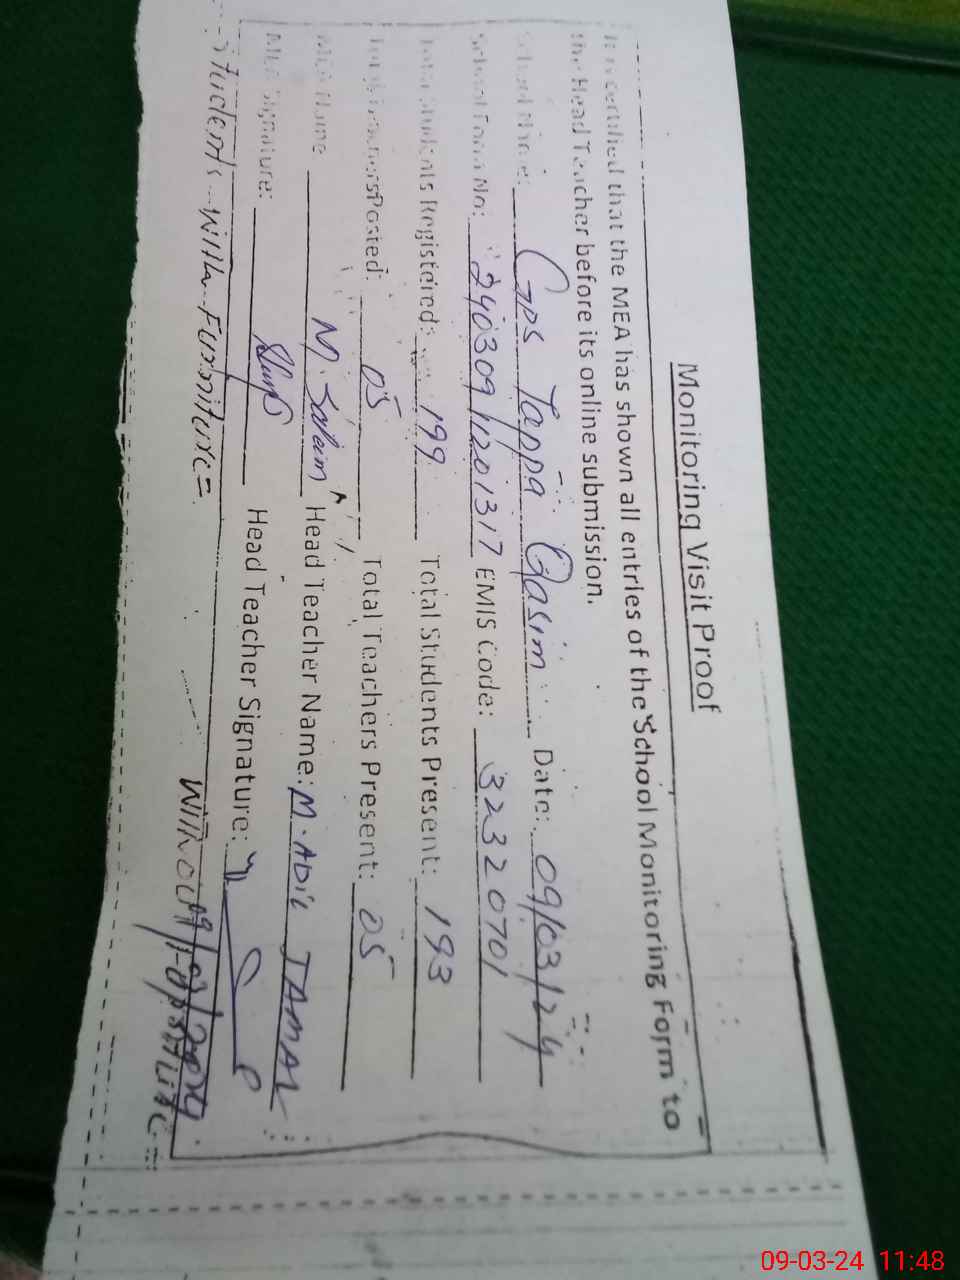 Monitoring Visit Proof
It is certified that the MEA has shown all entries of the School Monitoring Form to
the Head Teacher before its online submission.
School Name: GPS Tappa Qasim Date: 09/03/24
School Form No: 240309/1201317 EMIS Code: 32320701
Total Students Registered: 199 Total Students Present: 193
Total Teachers Posted: 05 Total Teachers Present: 05
MEA Name M. Saleem Head Teacher Name: M. Adil JAMAL
MEA Signature: Head Teacher Signature:
09/03/2024
Students with Furniture = Without Furniture =
09-03-24 11:48